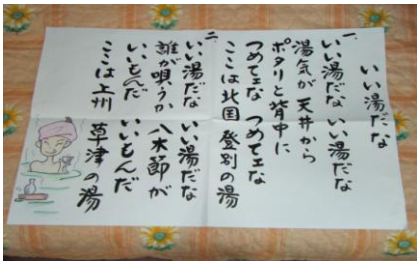 いい湯だな
一、
いい湯だな いい湯だな
湯気が天井から
ポタリと背中に
つめてェな つめてェな
ここは北国 登別の湯
二、
いい湯だな いい湯だな
誰が唄うか 八木節が
いいもんだ いいもんだ
ここは上州 草津の湯